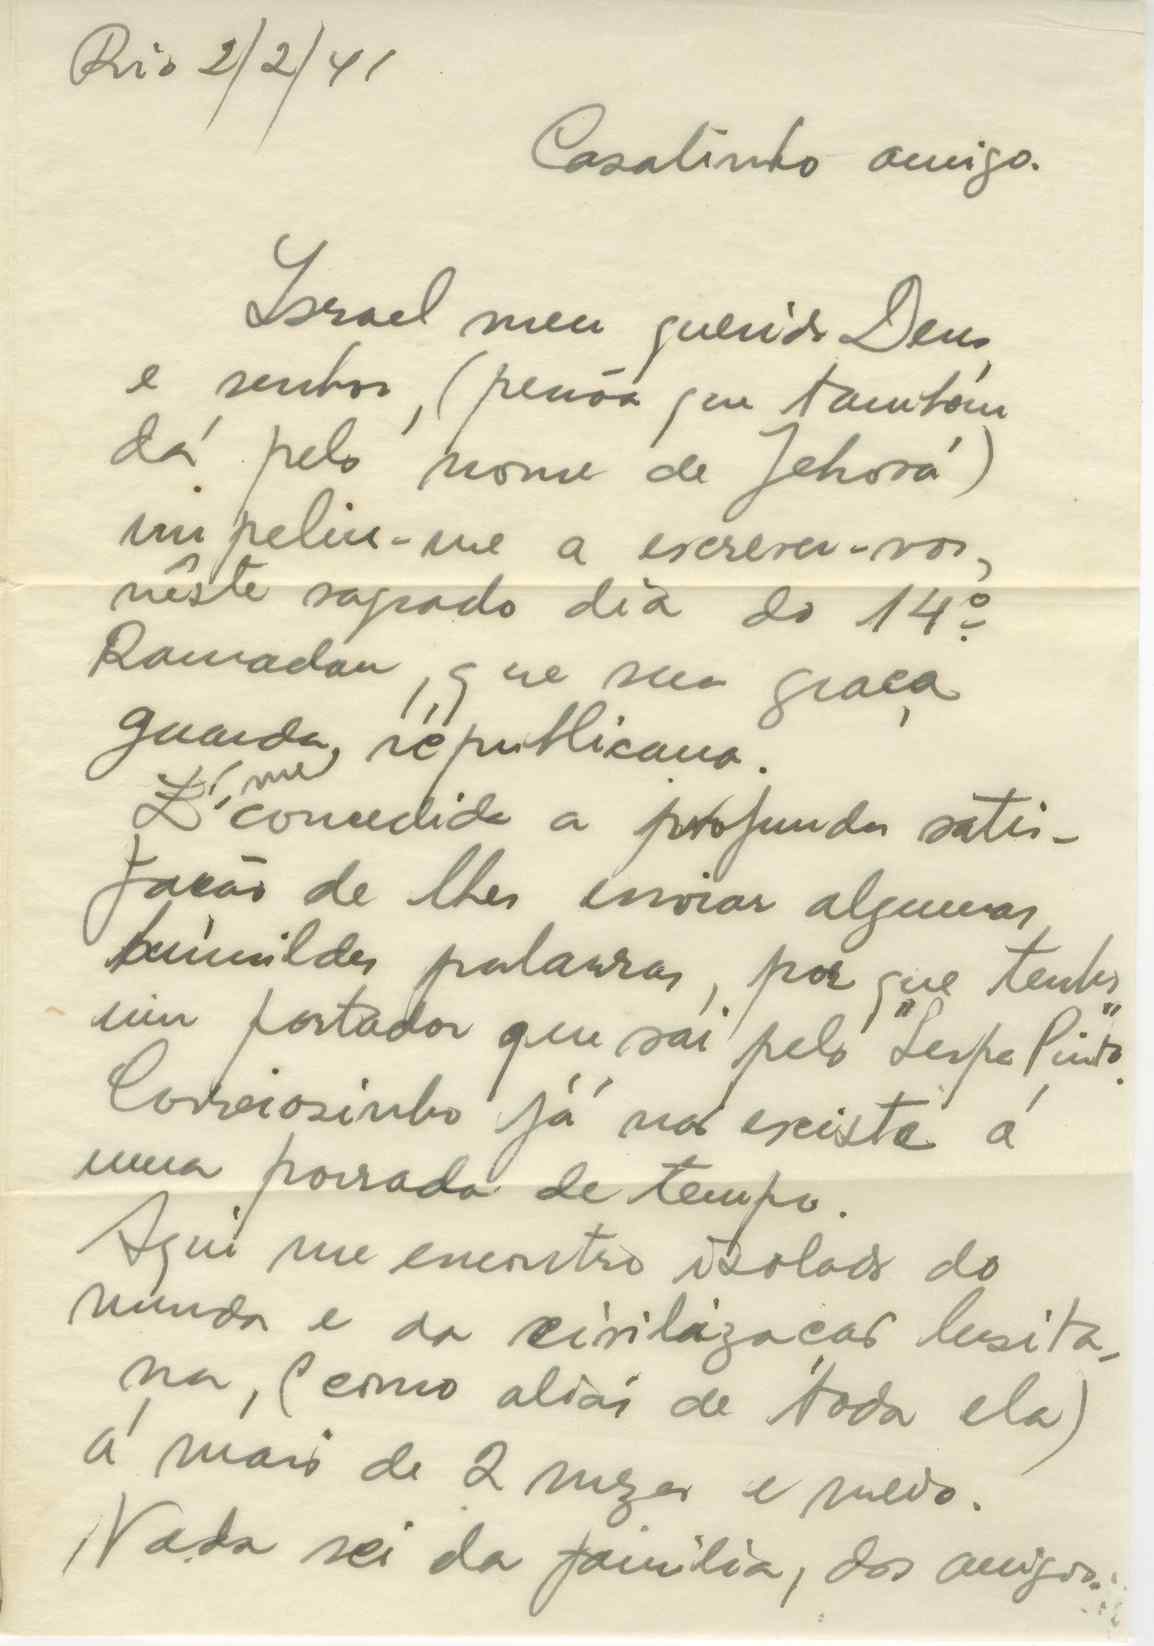 Rio 2/2/41
Casalinho amigo.
Israel meu querido Deus,
e senhor, (penso que também
dá pelo nome de Jehová)
impeliu-me a escrever-vos,
nêste sagrado dia do 14º
Ramadan, que sua graça
guarda, républicana.
É-me concedida a profunda satis-
fação de lhes enviar algumas
húmildes palavras, por que tenho
um portador que sai pelo "Serpa Pinto".
Correiosinho já não existe á
uma porrada de tempo.
Aqui me encontro isolado do
mundo e da civilização lusita-
na, (como aliás de tôda ela)
á mais de 2 mezes e meio.
Nada sei da familia, dos amigos.